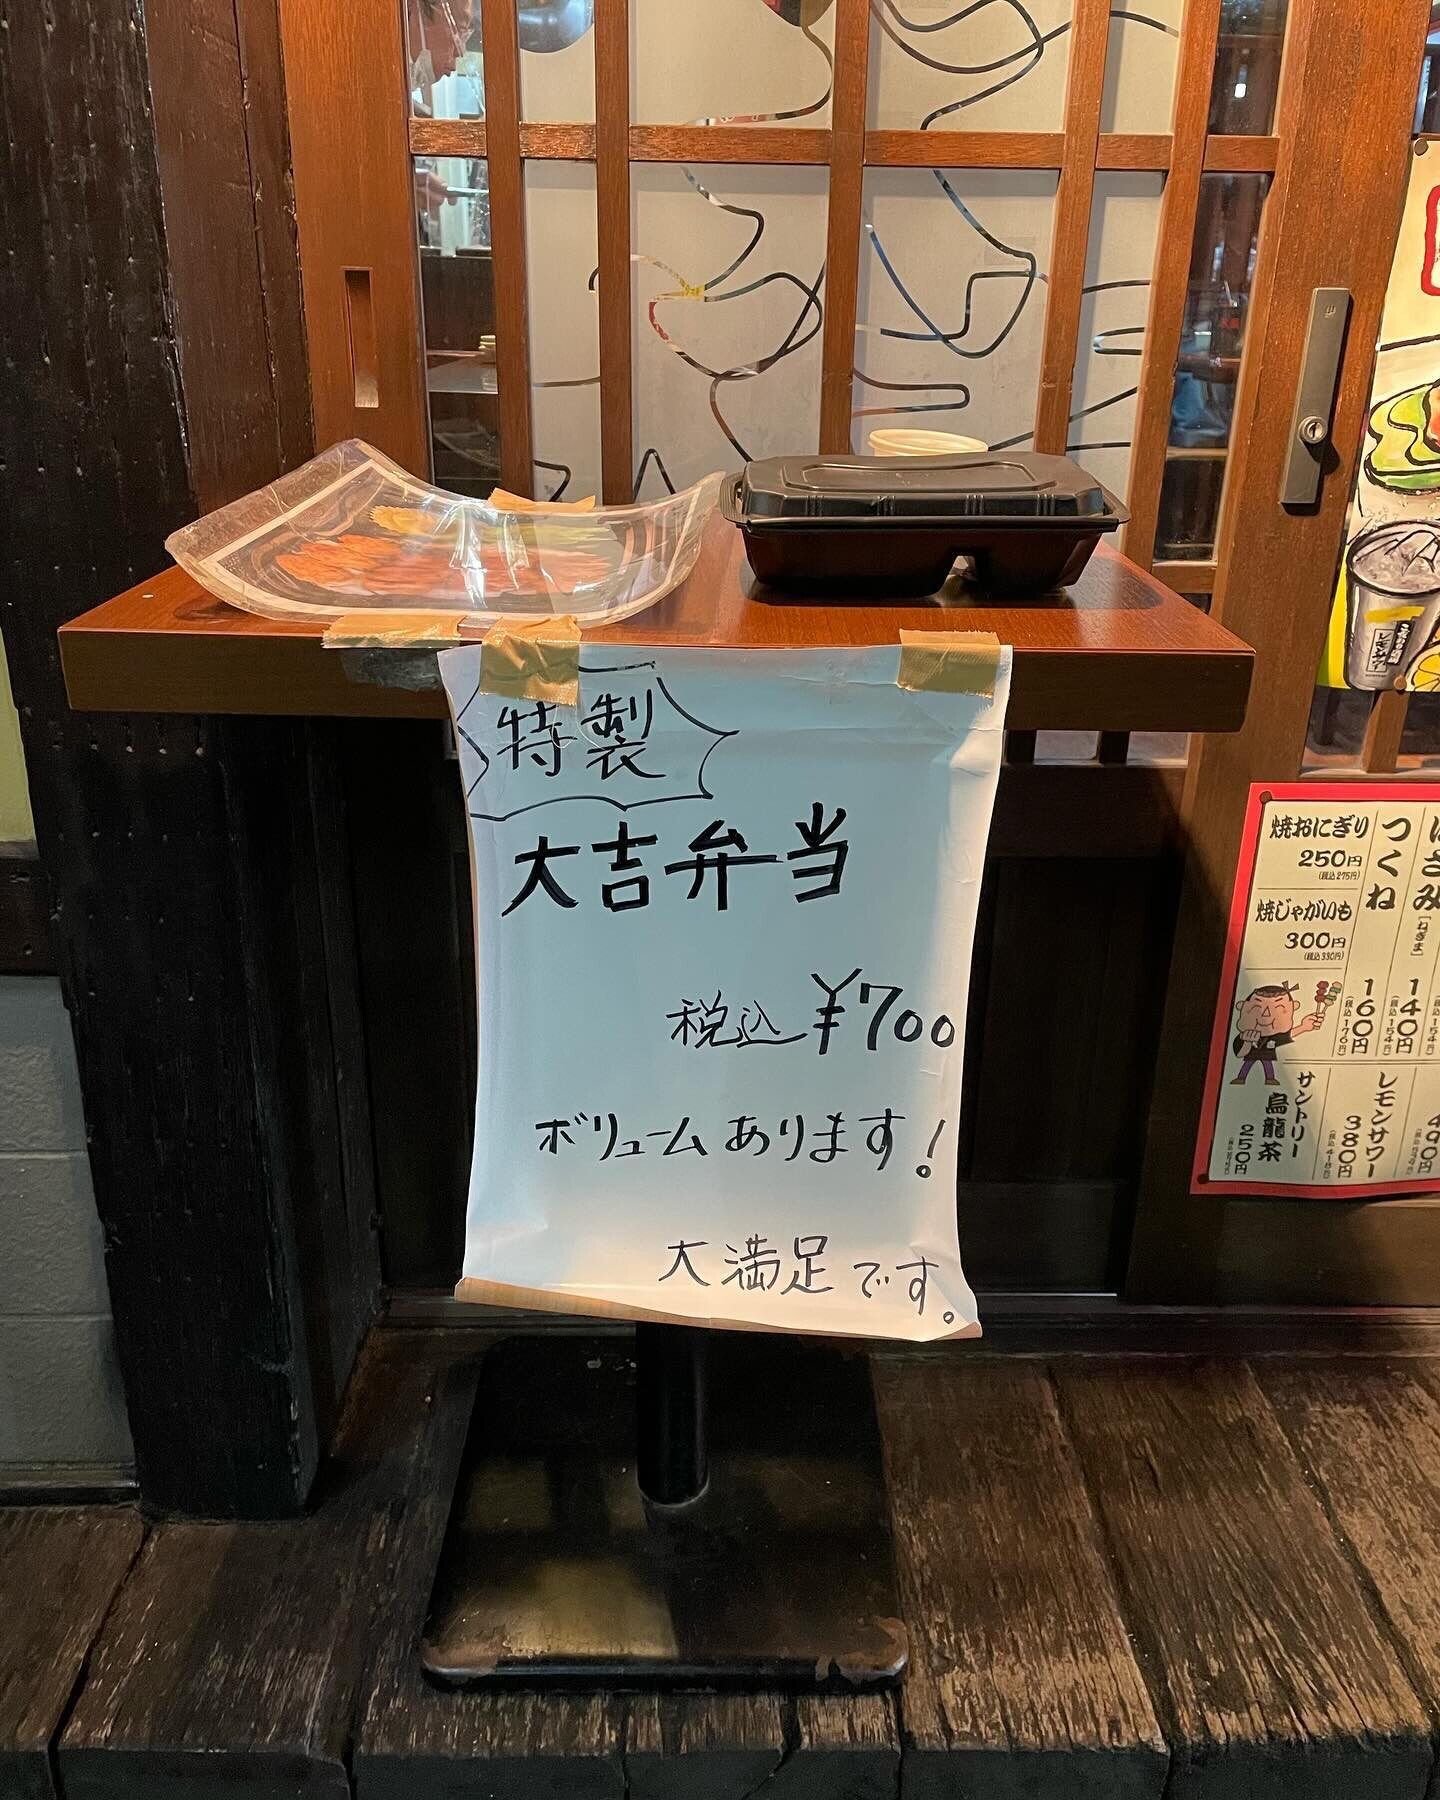 特製
大吉弁当
税込¥700
ボリュームあります!
大満足です。
焼おにぎり
250円
(税込275円)
焼じゃがいも
300円
(税込330円)
つくね
160円
(税込176円)
はさみ
[ねぎま]
140円
(税込154円)
サントリー
烏龍茶
250円
レモンサワー
380円
(税込418円)
490円
レモンサワー